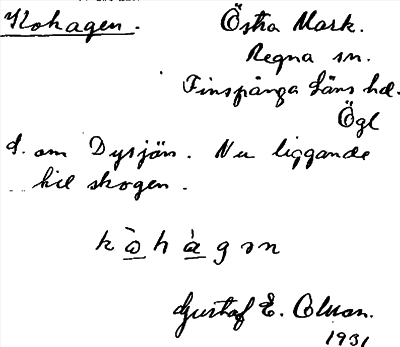 Kohagen.
Östra Mark.
Regna sn.
Finspånga läns hd.
Ögl
S. om Dysjön. Nu liggande
till skogen.
kò̱hà̱gən
Gustaf E. Olsson.
1931